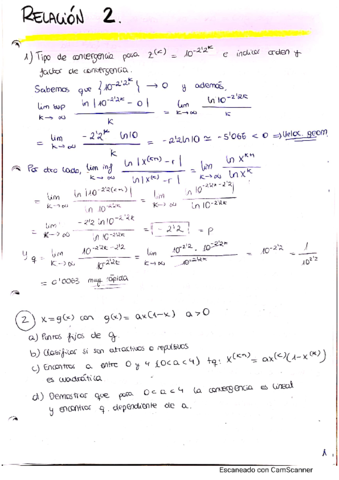 RELACIÓN 2.
1) Tipo de convergencia para z^(k) = 10^-2'2k e indicar orden y
factor de convergencia.
Sabemos que {10^-2'2k} → 0 y además,
lim sup k→∞ ln|10^-2'2k - 0| / k = lim k→∞ ln 10^-2'2k / k =
= lim k→∞ -2'2k ln10 / k = -2'2 ln10 ≃ -5'065 < 0 ⇒ Veloc. geom
Por otro lado, lim inf k→∞ ln|x^(k+1) - r| / ln|x^(k) - r| = lim k→∞ ln x^k+1 / ln x^k
= lim k→∞ ln|10^-2'2(k+1)| / ln|10^-2'2k| = lim k→∞ ln 10^-2'2k-2'2 / ln 10^-2'2k
= lim k→∞ -2'2 ln 10^-2'2k / ln 10^-2'2k = -2'2 = p
y q = lim k→∞ 10^-2'2k-2'2 / 10^-2'2k = lim k→∞ 10^-2'2 · 10^-2'2k / 10^-2'2k = 10^-2'2 = 1 / 10^2'2
= 0'0063 muy rápida
2) x = g(x) con g(x) = ax(1-x) a > 0
a) Puntos fijos de g
b) Clasificar si son atractivos o repulsivos
c) Encontrar a entre 0 y 4 (0 < a < 4) tq: x^(k+1) = ax^(k)(1 - x^(k))
es cuadrática
d) Demostrar que para 0 < a < 4 la convergencia es lineal
y encontrar q dependiente de a.
1
Escaneado con CamScanner